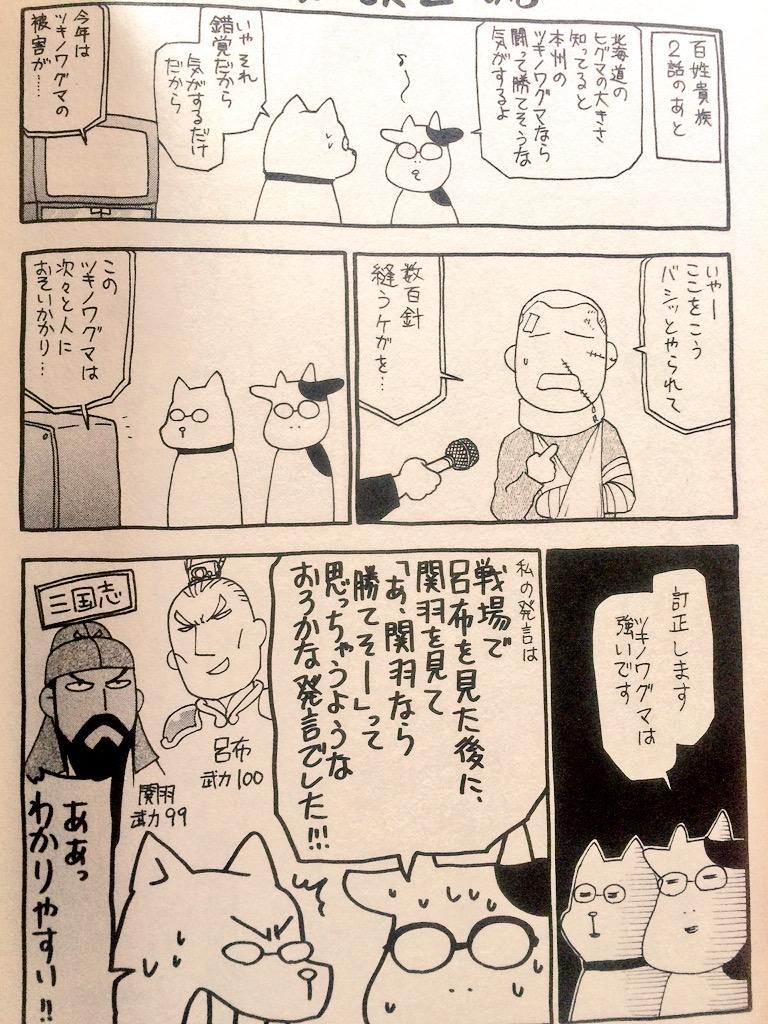 百姓貴族
2話のあと
北海道の
ヒグマの大きさ
知ってると
本州の
ツキノワグマなら
闘って勝てそうな
気がするよ
いや それ
錯覚だから
気がするだけ
だから
今年は
ツキノワグマの
被害が……
いやー
ここをこう
バシッとやられて
数百針
縫うケガを…
この
ツキノワグマは
次々と人に
おそいかかり…
訂正します
ツキノワグマは
強いです
私の発言は
戦場で
呂布を見た後に、
関羽を見て
「あ、関羽なら
勝てそー」って
思っちゃうような
おろかな発言でした!!!
三国志
呂布
武力100
関羽
武力99
ああっ
わかりやすい!!